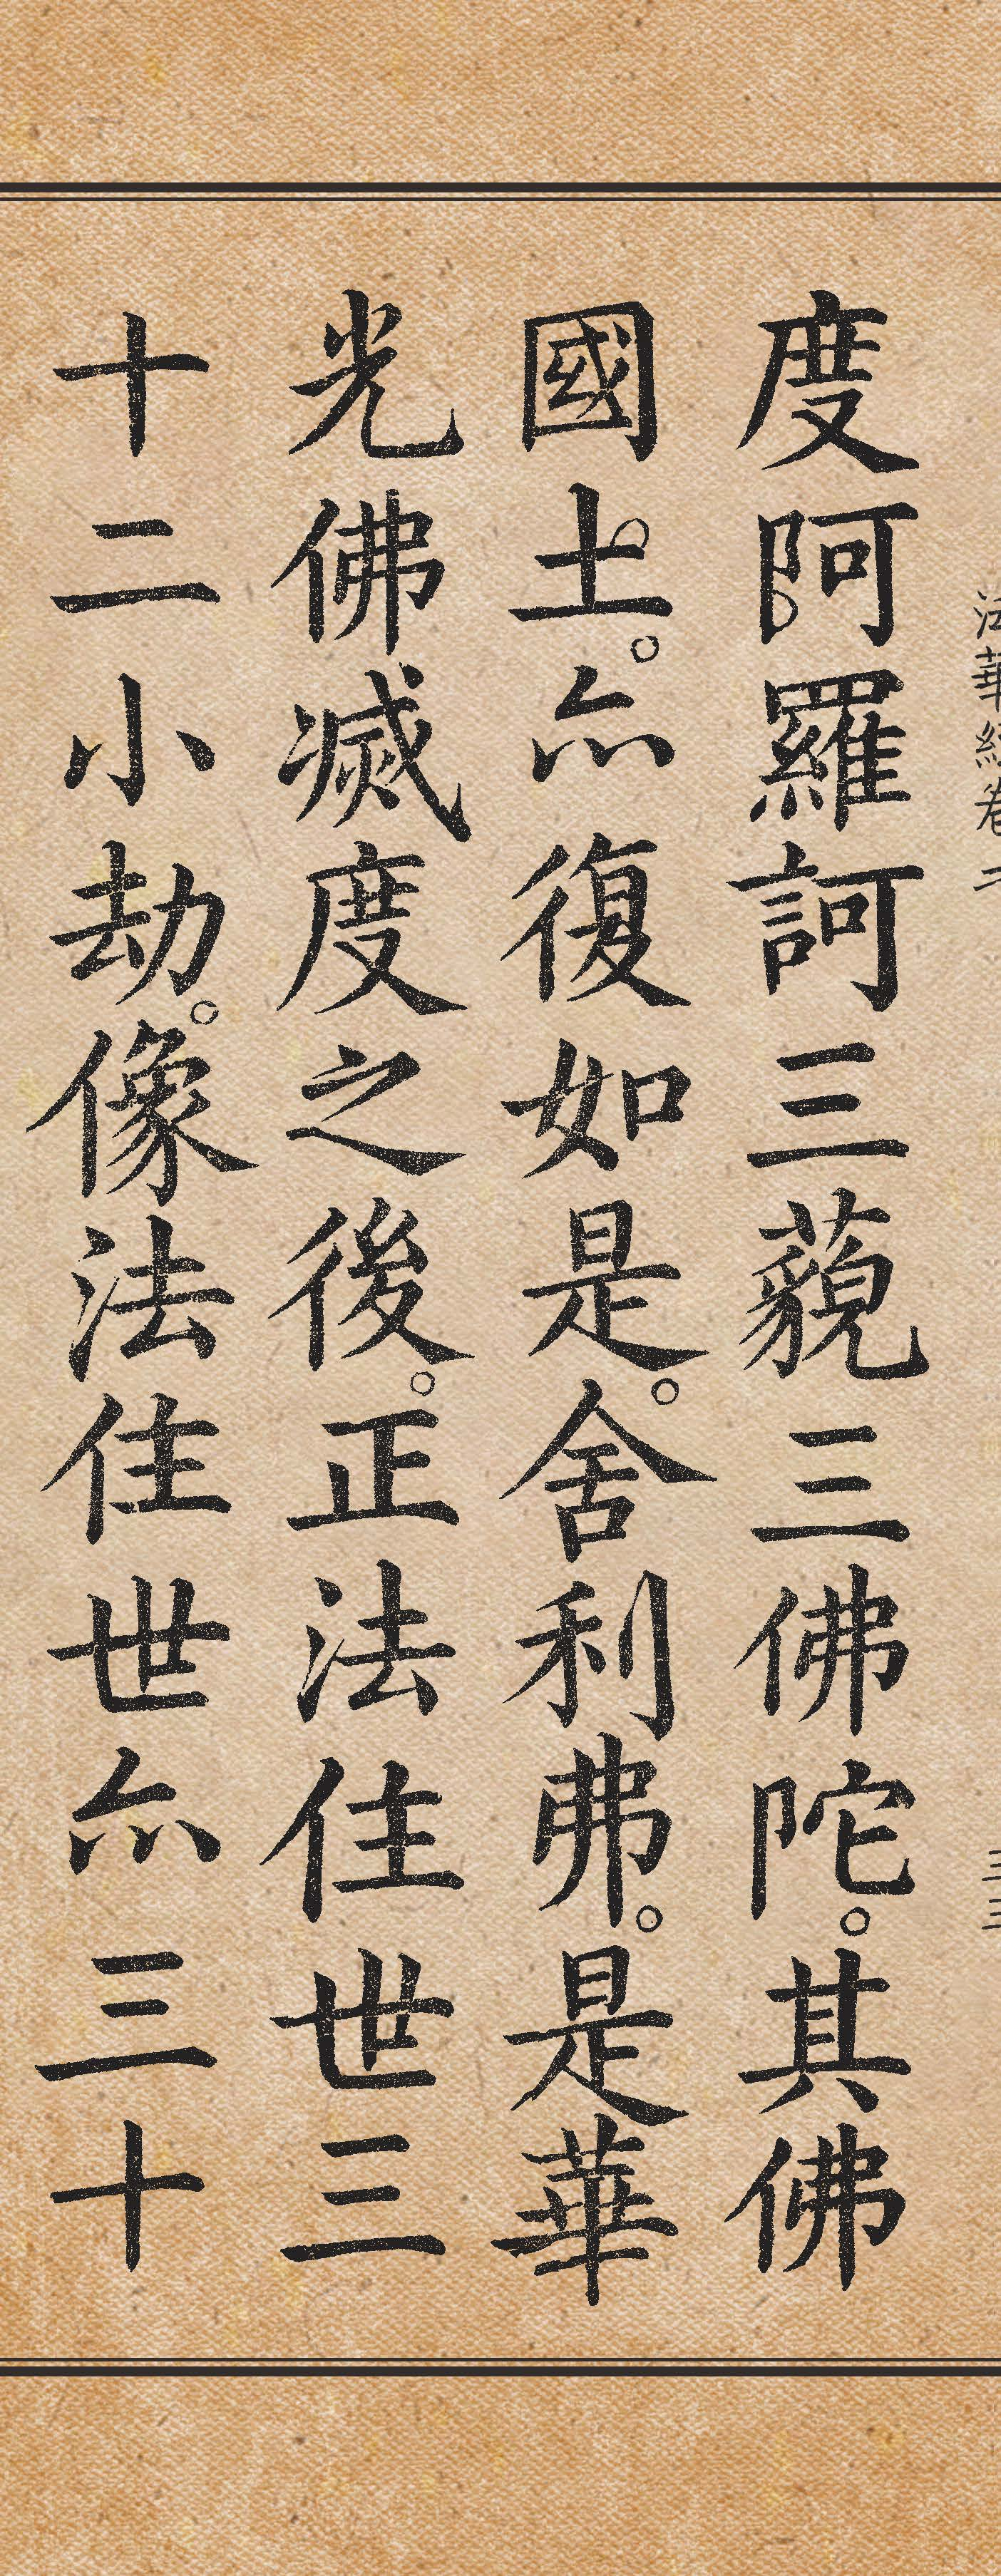 法華經卷二
三三
度阿羅訶三藐三佛陀。其佛
國土。亦復如是。舍利弗。是華
光佛滅度之後。正法住世三
十二小劫。像法住世亦三十